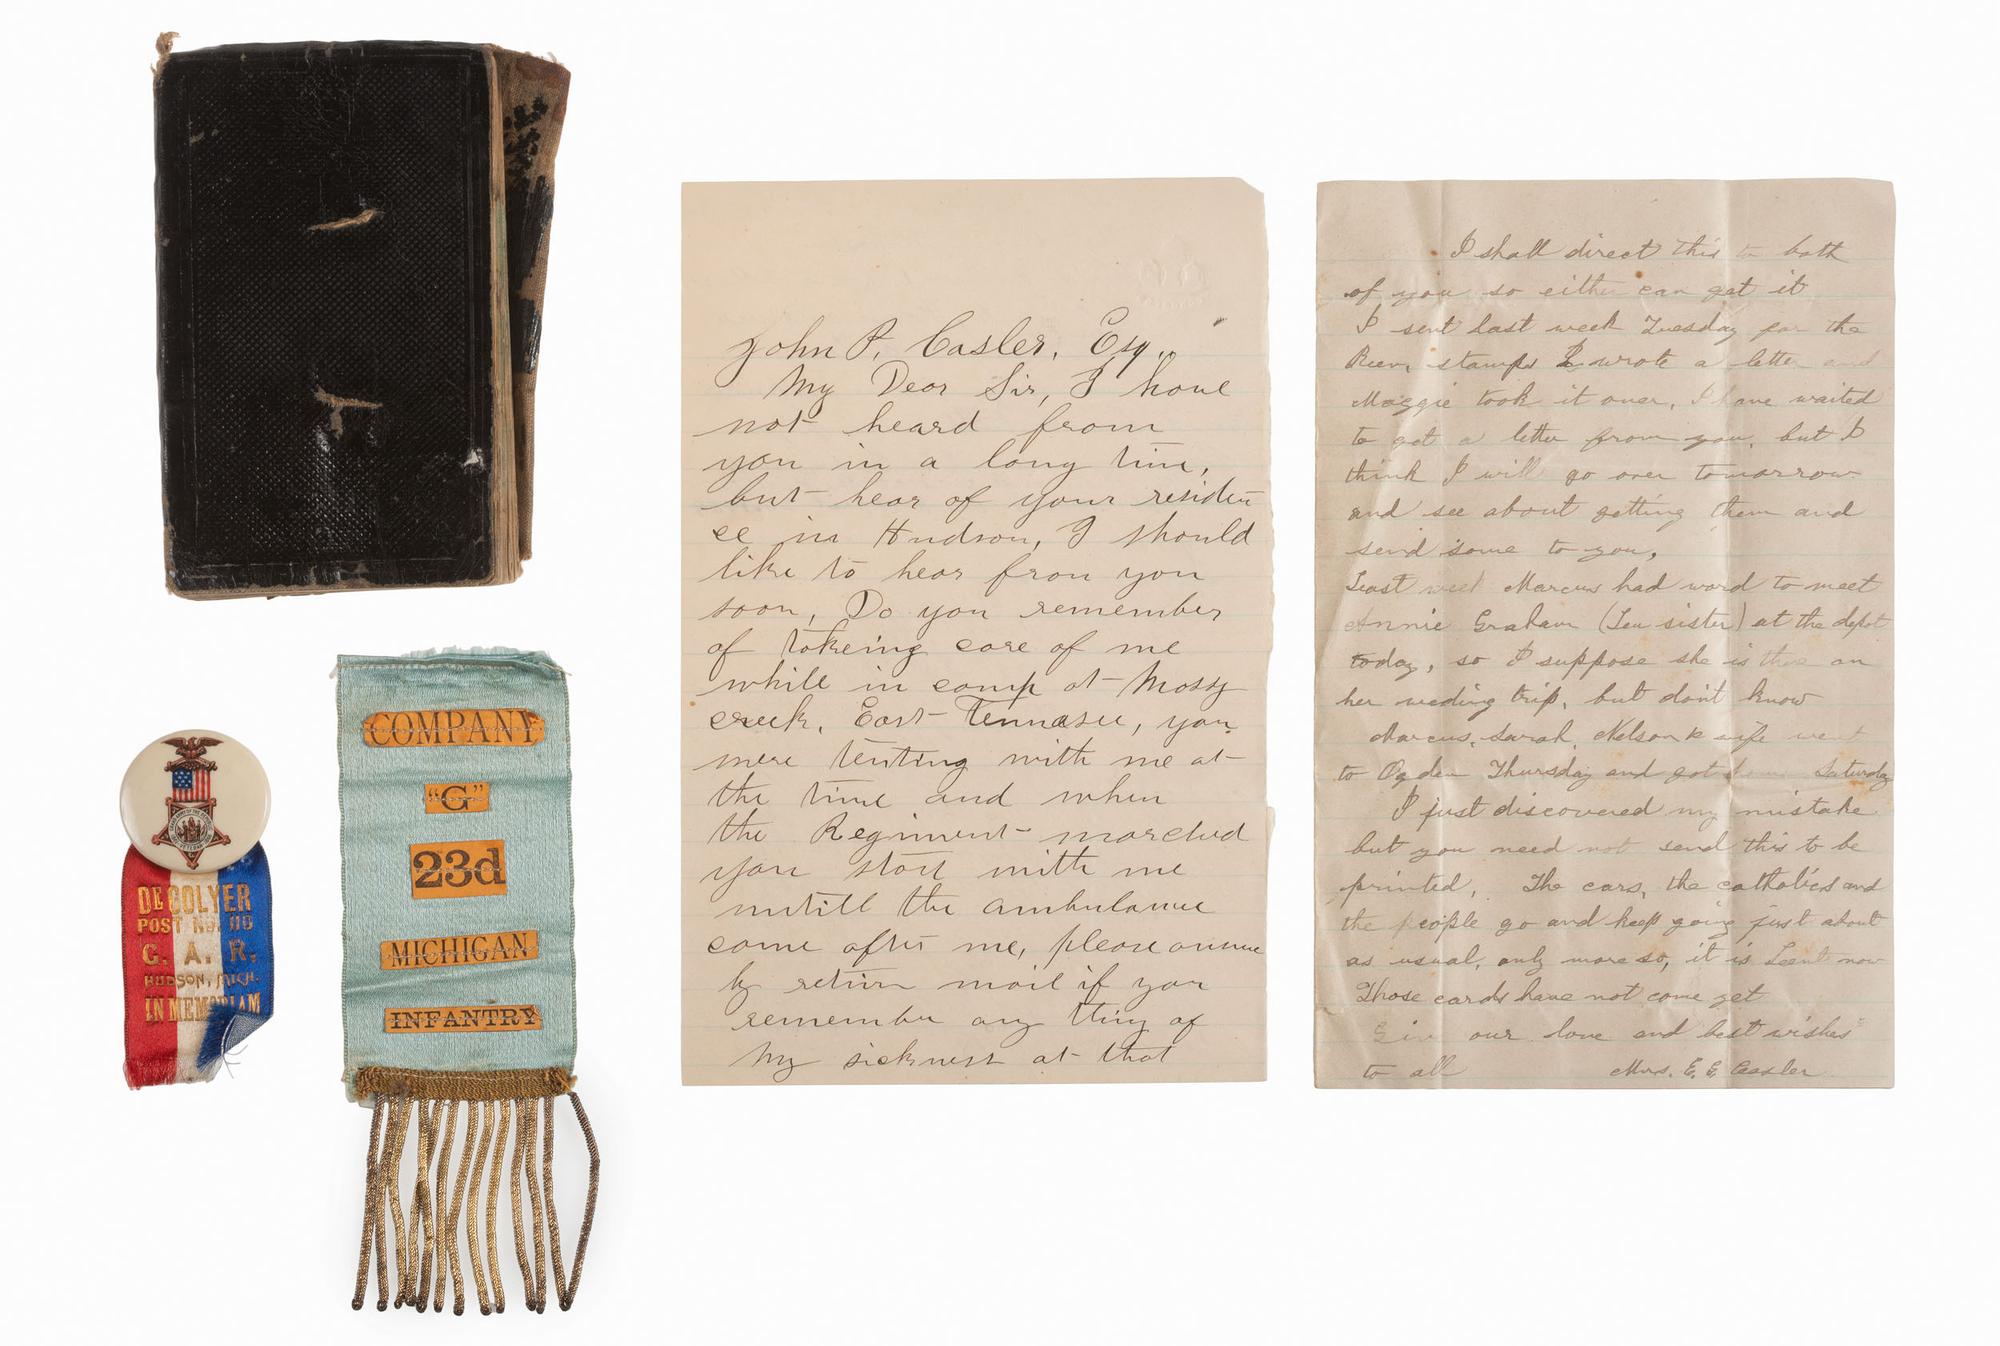 DECOLYER
POST NO. 110
G. A. R.
HUDSON, MICH.
IN MEMORIAM
COMPANY
"G"
23d
MICHIGAN
INFANTRY
John P. Casler, Esq.,
My Dear Sir, I have
not heard from
you in a long time,
but hear of your residen
ce in Hudson, I should
like to hear from you
soon, Do you remember
of takeing care of me
while in camp at Mossy
creek, East Tennasee, you
were tenting with me at
the time and when
the Regiment marched
you staid with me
untill the ambulance
came after me, please answer
by return mail if you
remember any thing of
my sickness at that
I shall direct this to both
of you so either can get it
I sent last week Tuesday for the
stamps I wrote a letter and
Maggie took it over, I have waited
to get a letter from you, but I
think I will go over tomorrow
and see about getting them and
send some to you,
Last week Marcus had word to meet
Annie Graham (Lew sister) at the depot
today, so I suppose she is there on
her weding trip, but don't know
Marcus, Sarah, Nelson & wife went
to Ogden Thursday and got home Saturday
I just discovered my mistake
but you need not send this to be
printed, The cars, the catholics and
the people go and keep going just about
as usual, only more so, it is Lent now
Those cards have not come yet
Give our love and best wishes
to all Mrs. E. E. Casler